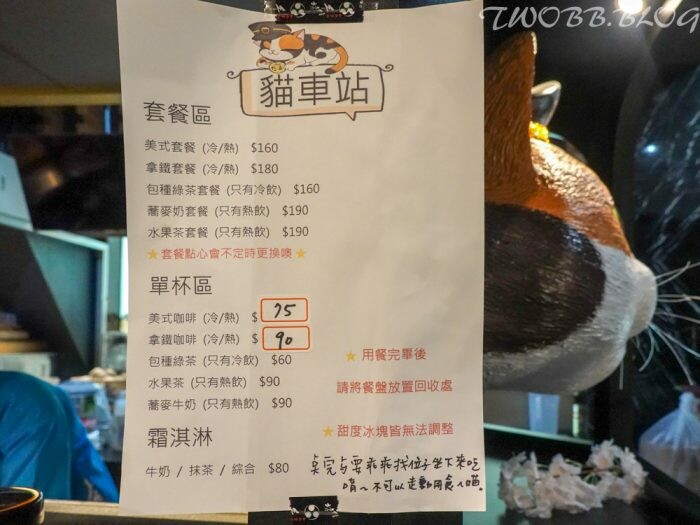 TWOBB.BLOG
貓車站
套餐區
美式套餐 (冷/熱) $160
拿鐵套餐 (冷/熱) $180
包種綠茶套餐 (只有冷飲) $160
蕎麥奶套餐 (只有熱飲) $190
水果茶套餐 (只有熱飲) $190
★套餐點心會不定時更換噢★
單杯區
美式咖啡 (冷/熱) $ 75
拿鐵咖啡 (冷/熱) $ 90
包種綠茶 (只有冷飲) $60
水果茶 (只有熱飲) $90
蕎麥牛奶 (只有熱飲) $90
★ 用餐完畢後
請將餐盤放置回收處
★甜度冰塊皆無法調整
霜淇淋
牛奶 / 抹茶 / 綜合 $80
完占要乖乖找位子坐下來吃
唷~不可以走動用食~喵。